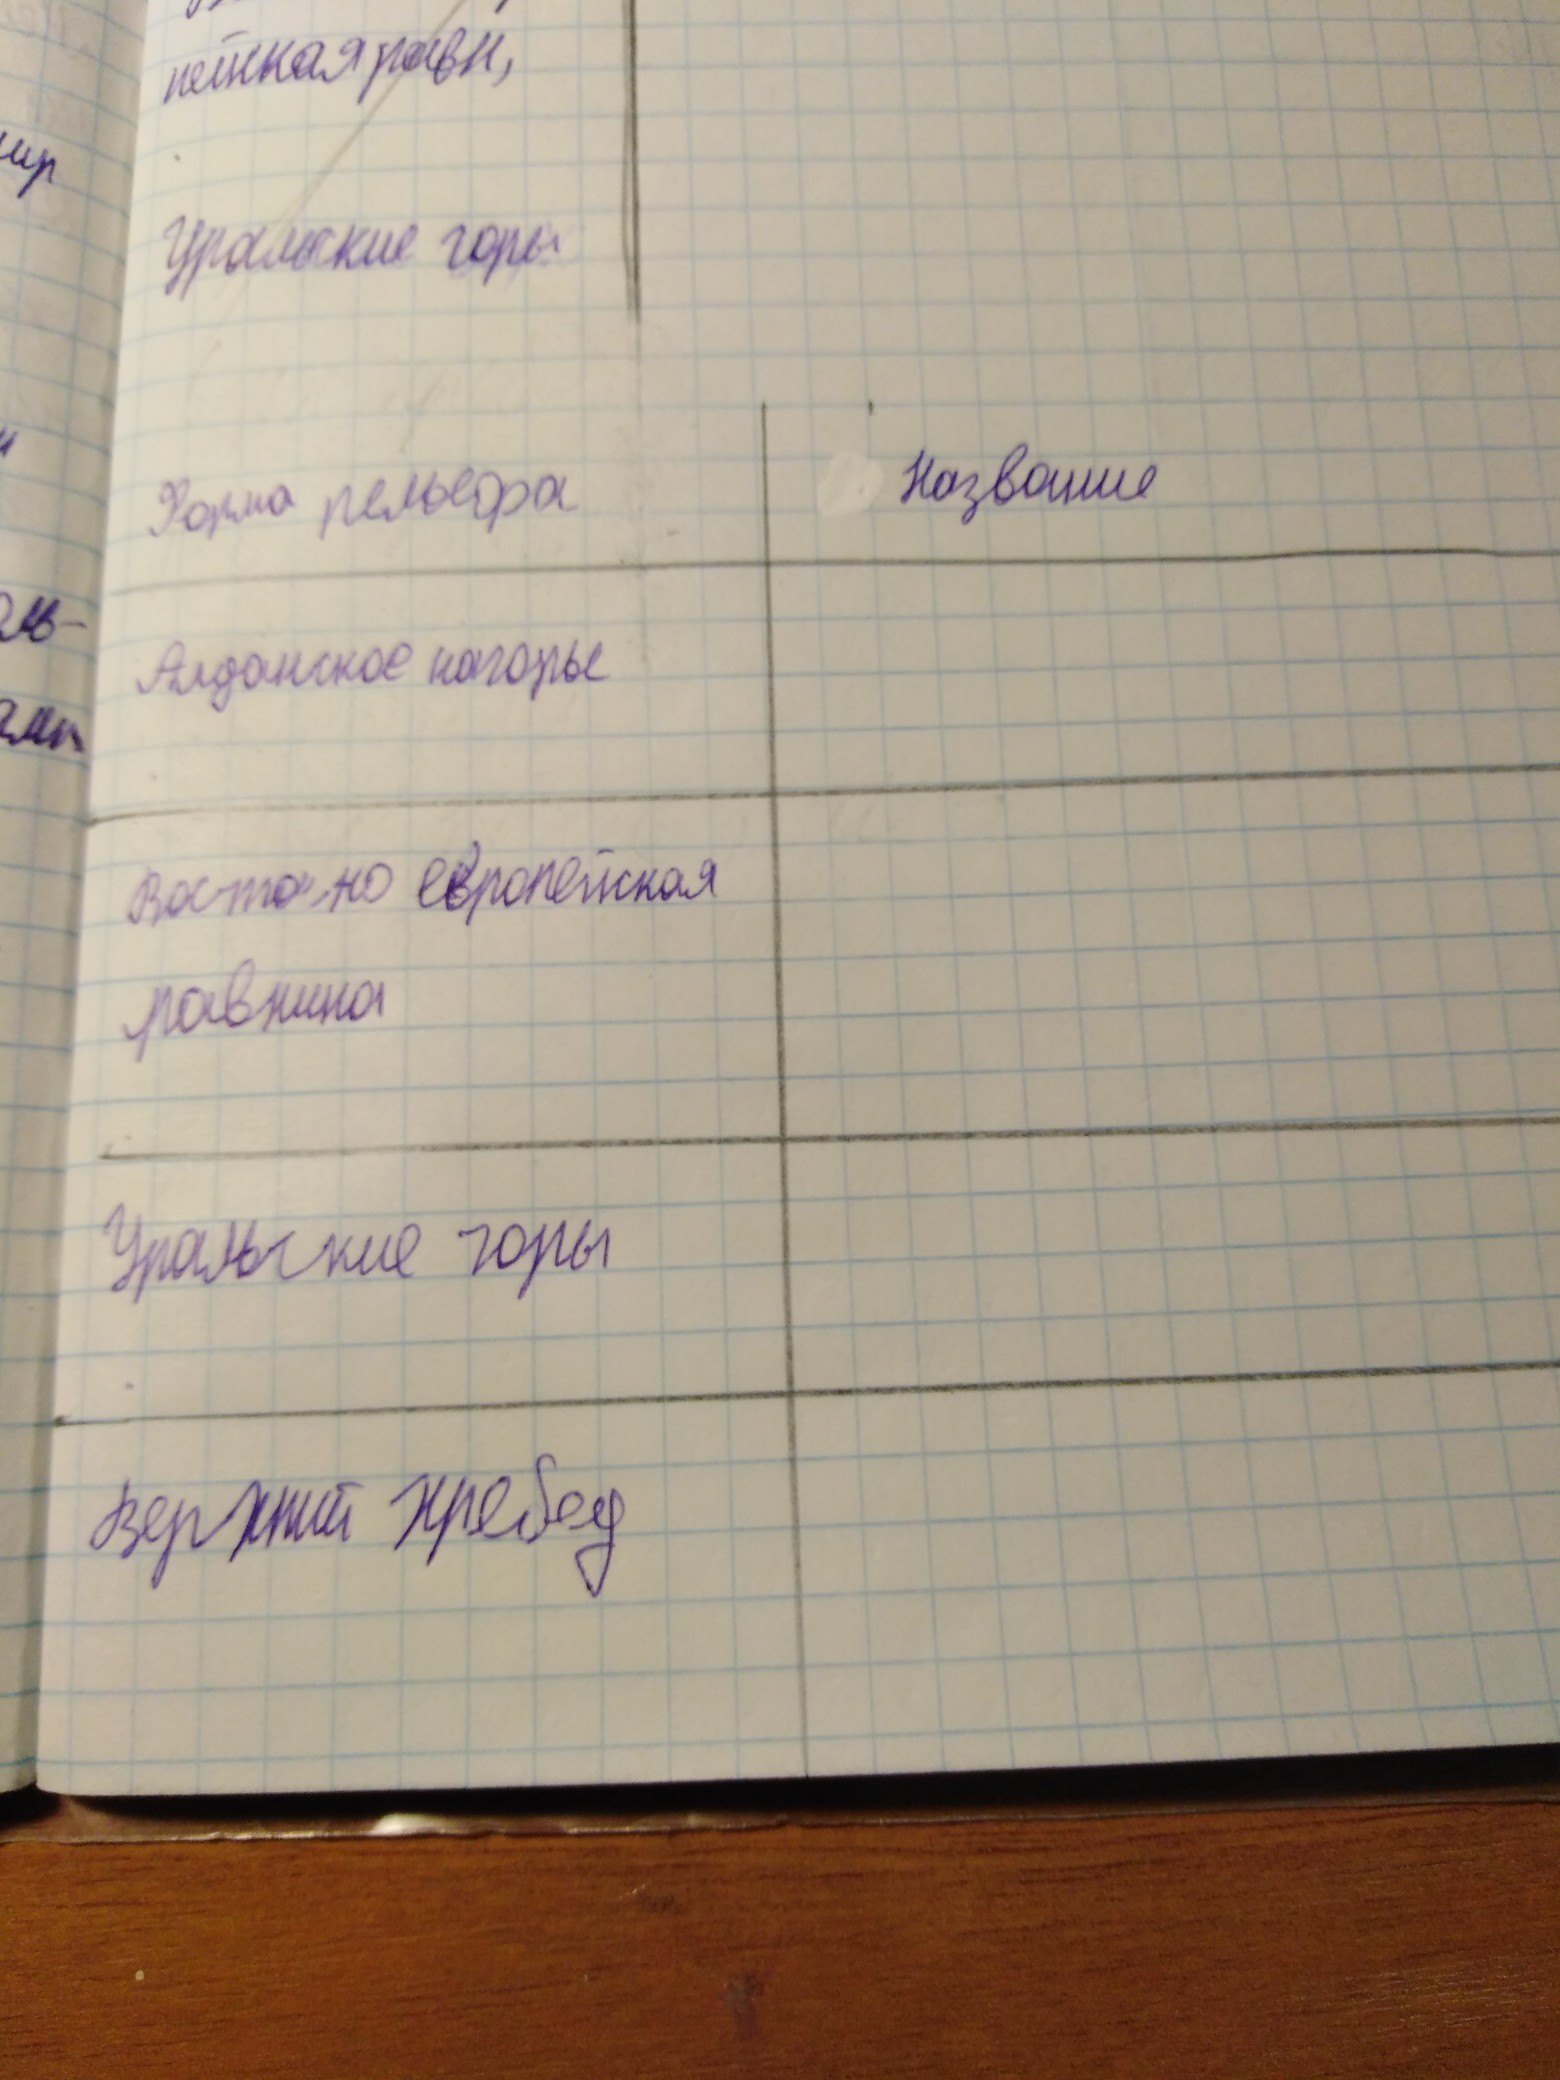 пейская равн,
Уральские горы
Форма рельефа
Название
Алданское нагорье
Восточно европейская
равнина
Уральские горы
Верхний хребед